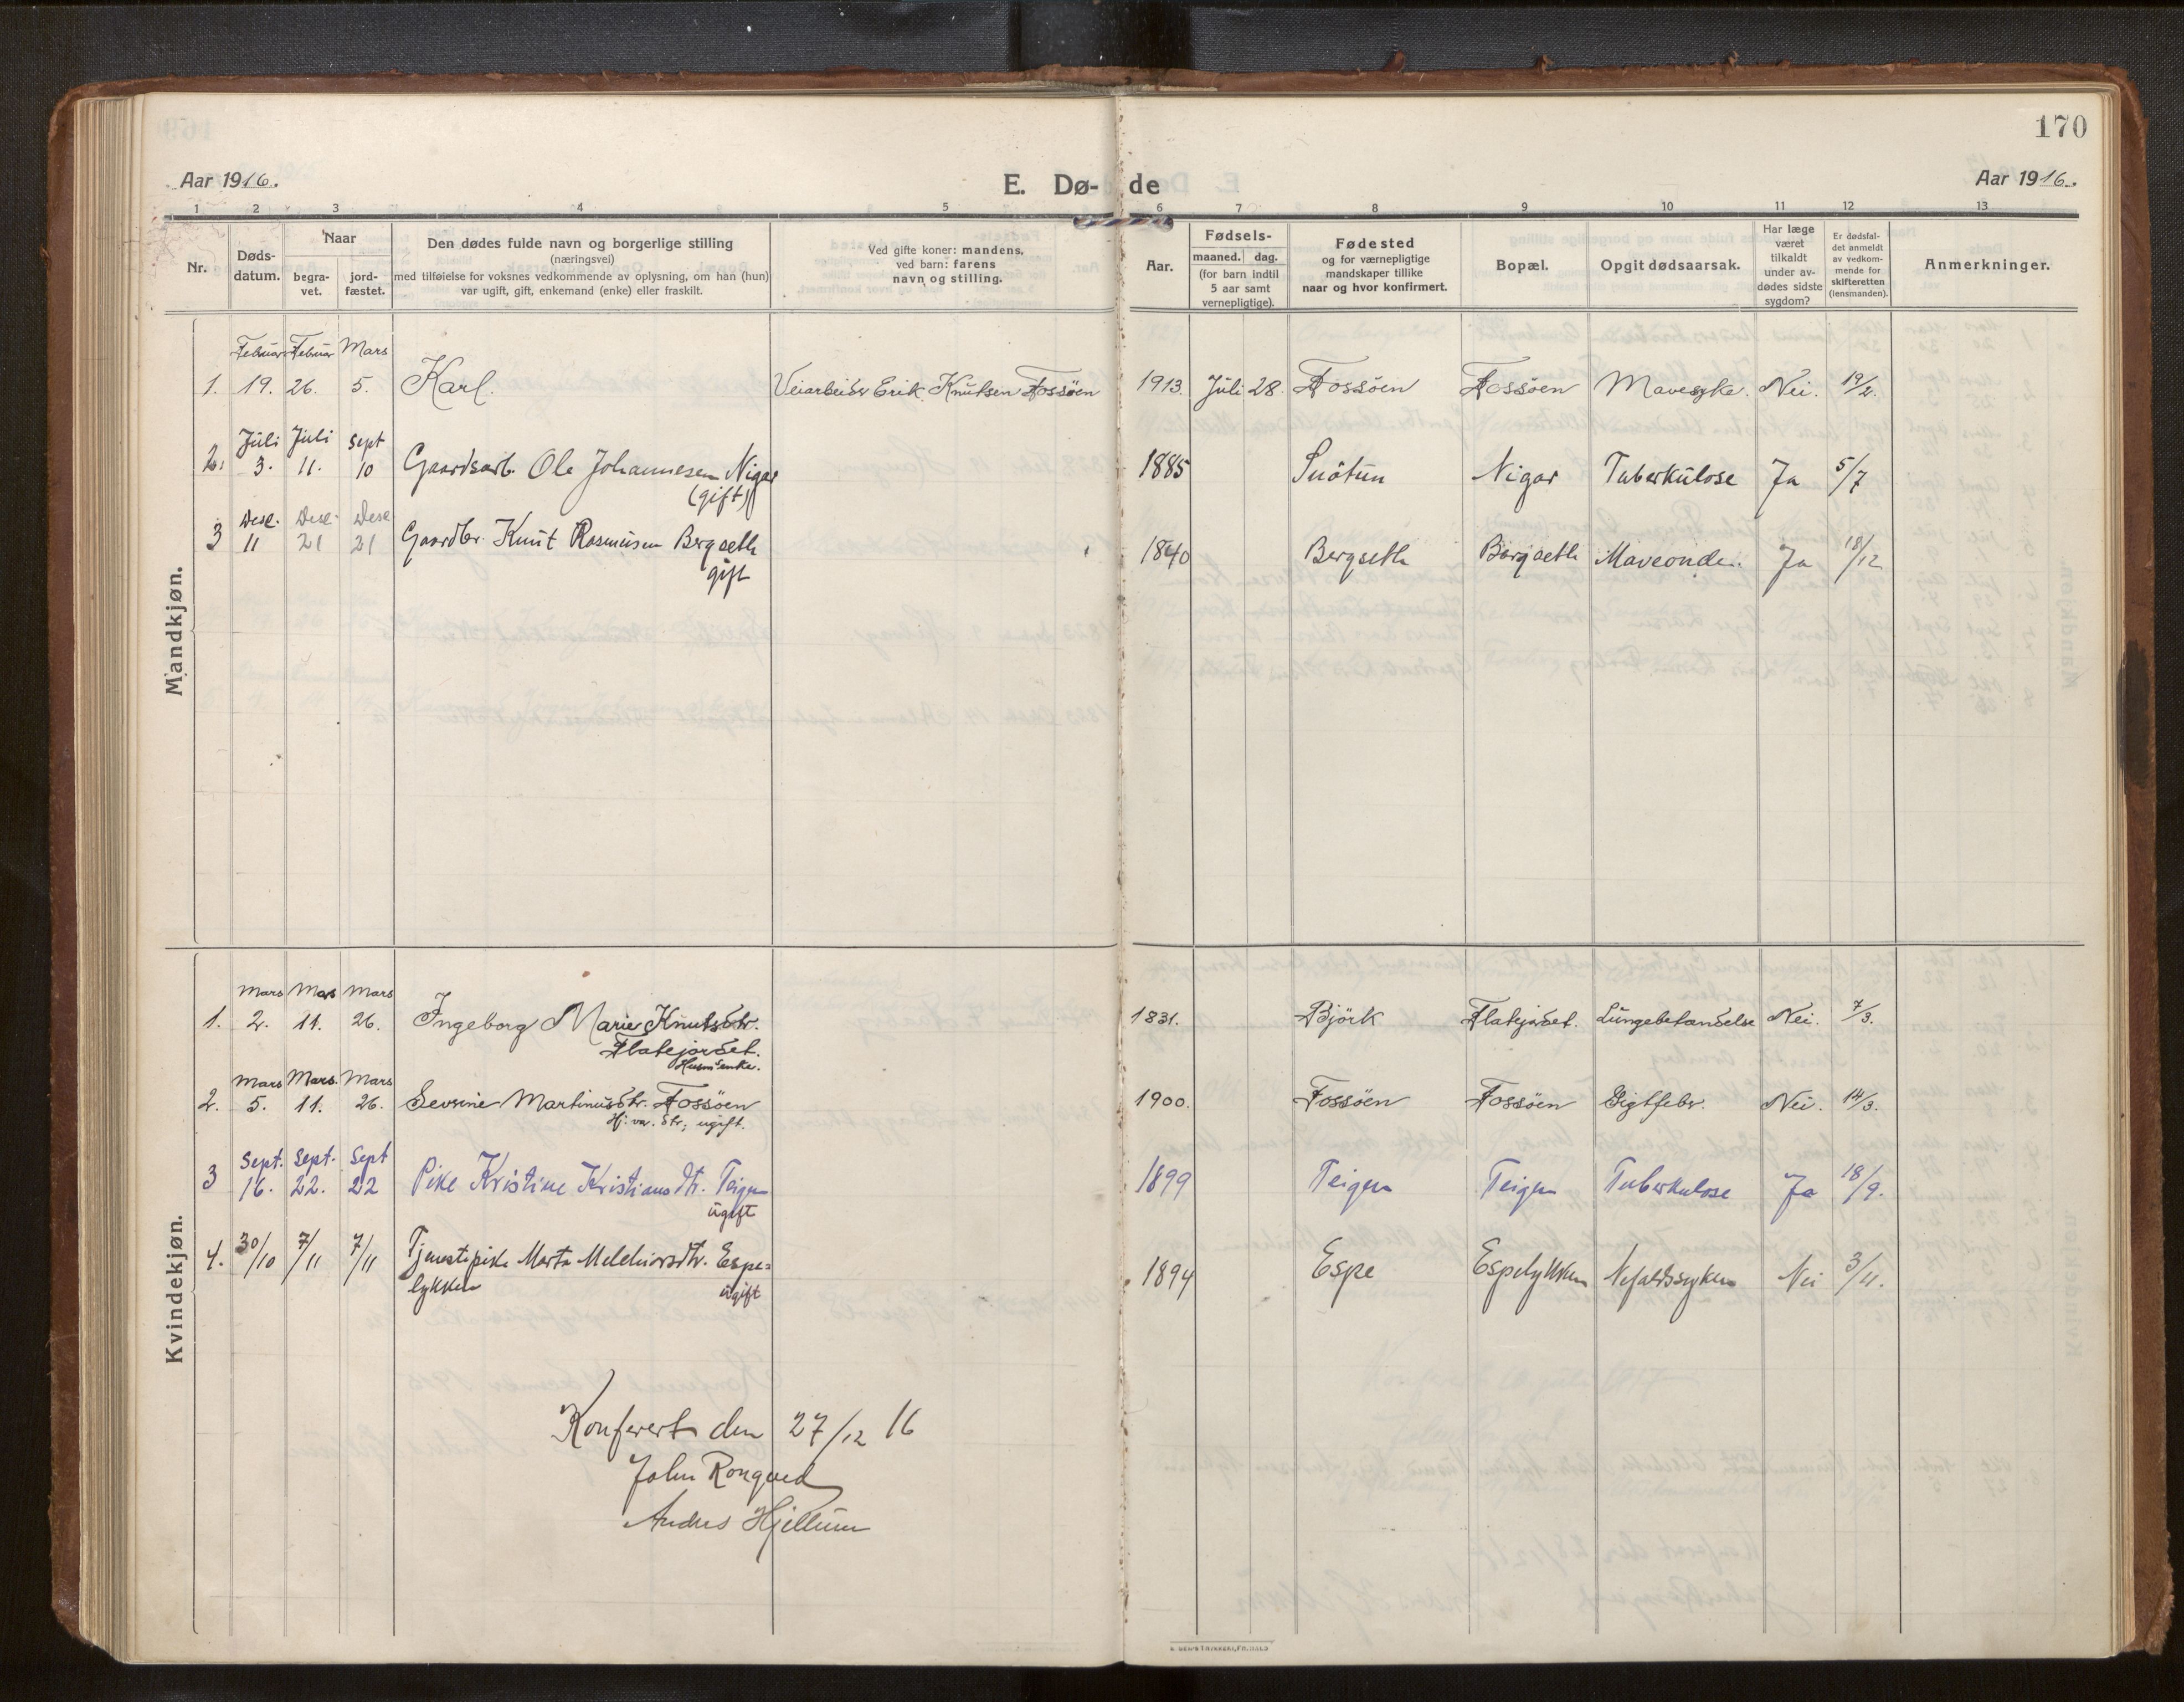 170
Aar 1916.
E. Dø- de
Aar 1916.
1 2 3 4 5 6 7 8 9 10 11 12 13
Nr.
Døds-
datum.
Naar
begra-
vet.
jord-
fæstet.
Den dødes fulde navn og borgerlige stilling
(næringsvei)
med tilføielse for voksnes vedkommende av oplysning, om han (hun)
var ugift, gift, enkemand (enke) eller fraskilt.
Ved gifte koner: mandens,
ved barn: farens
navn og stilling.
Aar.
Fødsels-
maaned. dag.
(for barn indtil
5 aar samt
vernepligtige).
Fødested
og for værnepligtige
mandskaper tillike
naar og hvor konfirmert.
Bopæl.
Opgit dødsaarsak.
Har læge
været
tilkaldt
under av-
dødes sidste
sygdom?
Er dødsfal-
det anmeldt
av vedkom-
mende for
skifteretten
(lensmanden).
Anmerkninger.
Mandkjøn.
Februar Februar Mars
1. 19. 26. 5. Karl. Veiarbeider Erik Knutsen Fossöen 1913. Juli 28. Fossöen Fossöen Mavesyke. Nei. 19/2.
Juli Juli Sept
2. 3. 11. 10 Gaardsarb. Ole Johannesen Nigar 1885 Snötun Nigar Tuberkulose Ja 5/7
(gift)
Dese. Dese. Dese
3 11 21 21 Gaardbr. Knut Rasmusen Bergseth 1840 Bergseth Bergseth Maveonde. Ja 18/12
gift
Kvindekjøn.
Mars Mars Mars
1. 2. 11. 26. Ingeborg Marie Knutsdtr. 1831. Björk Flatejordet. Lungebetandelse Nei. 7/3.
Flatejordet.
Husm'enke.
Mars Mars. Mars
2. 5. 11. 26. Severine Martinusdtr. Fossöen 1900. Fossöen Fossöen Gigtfeber. Nei. 14/3.
Hj. var. dtr; ugift.
Sept. Sept. Sept
3 16. 22. 22 Pike Kristine Kristiansdtr. Teigen 1899 Teigen Teigen Tuberkulose Ja 18/9.
ugift
4. 30/10 7/11 7/11 Tjenestepike Marta Melchiorsdtr. Espe= 1894 Espe Espelykken Nefaldssyken Nei 3/11.
lykken ugift
Konferert den 27/12 16
John Ronqved
Andres Hjellum